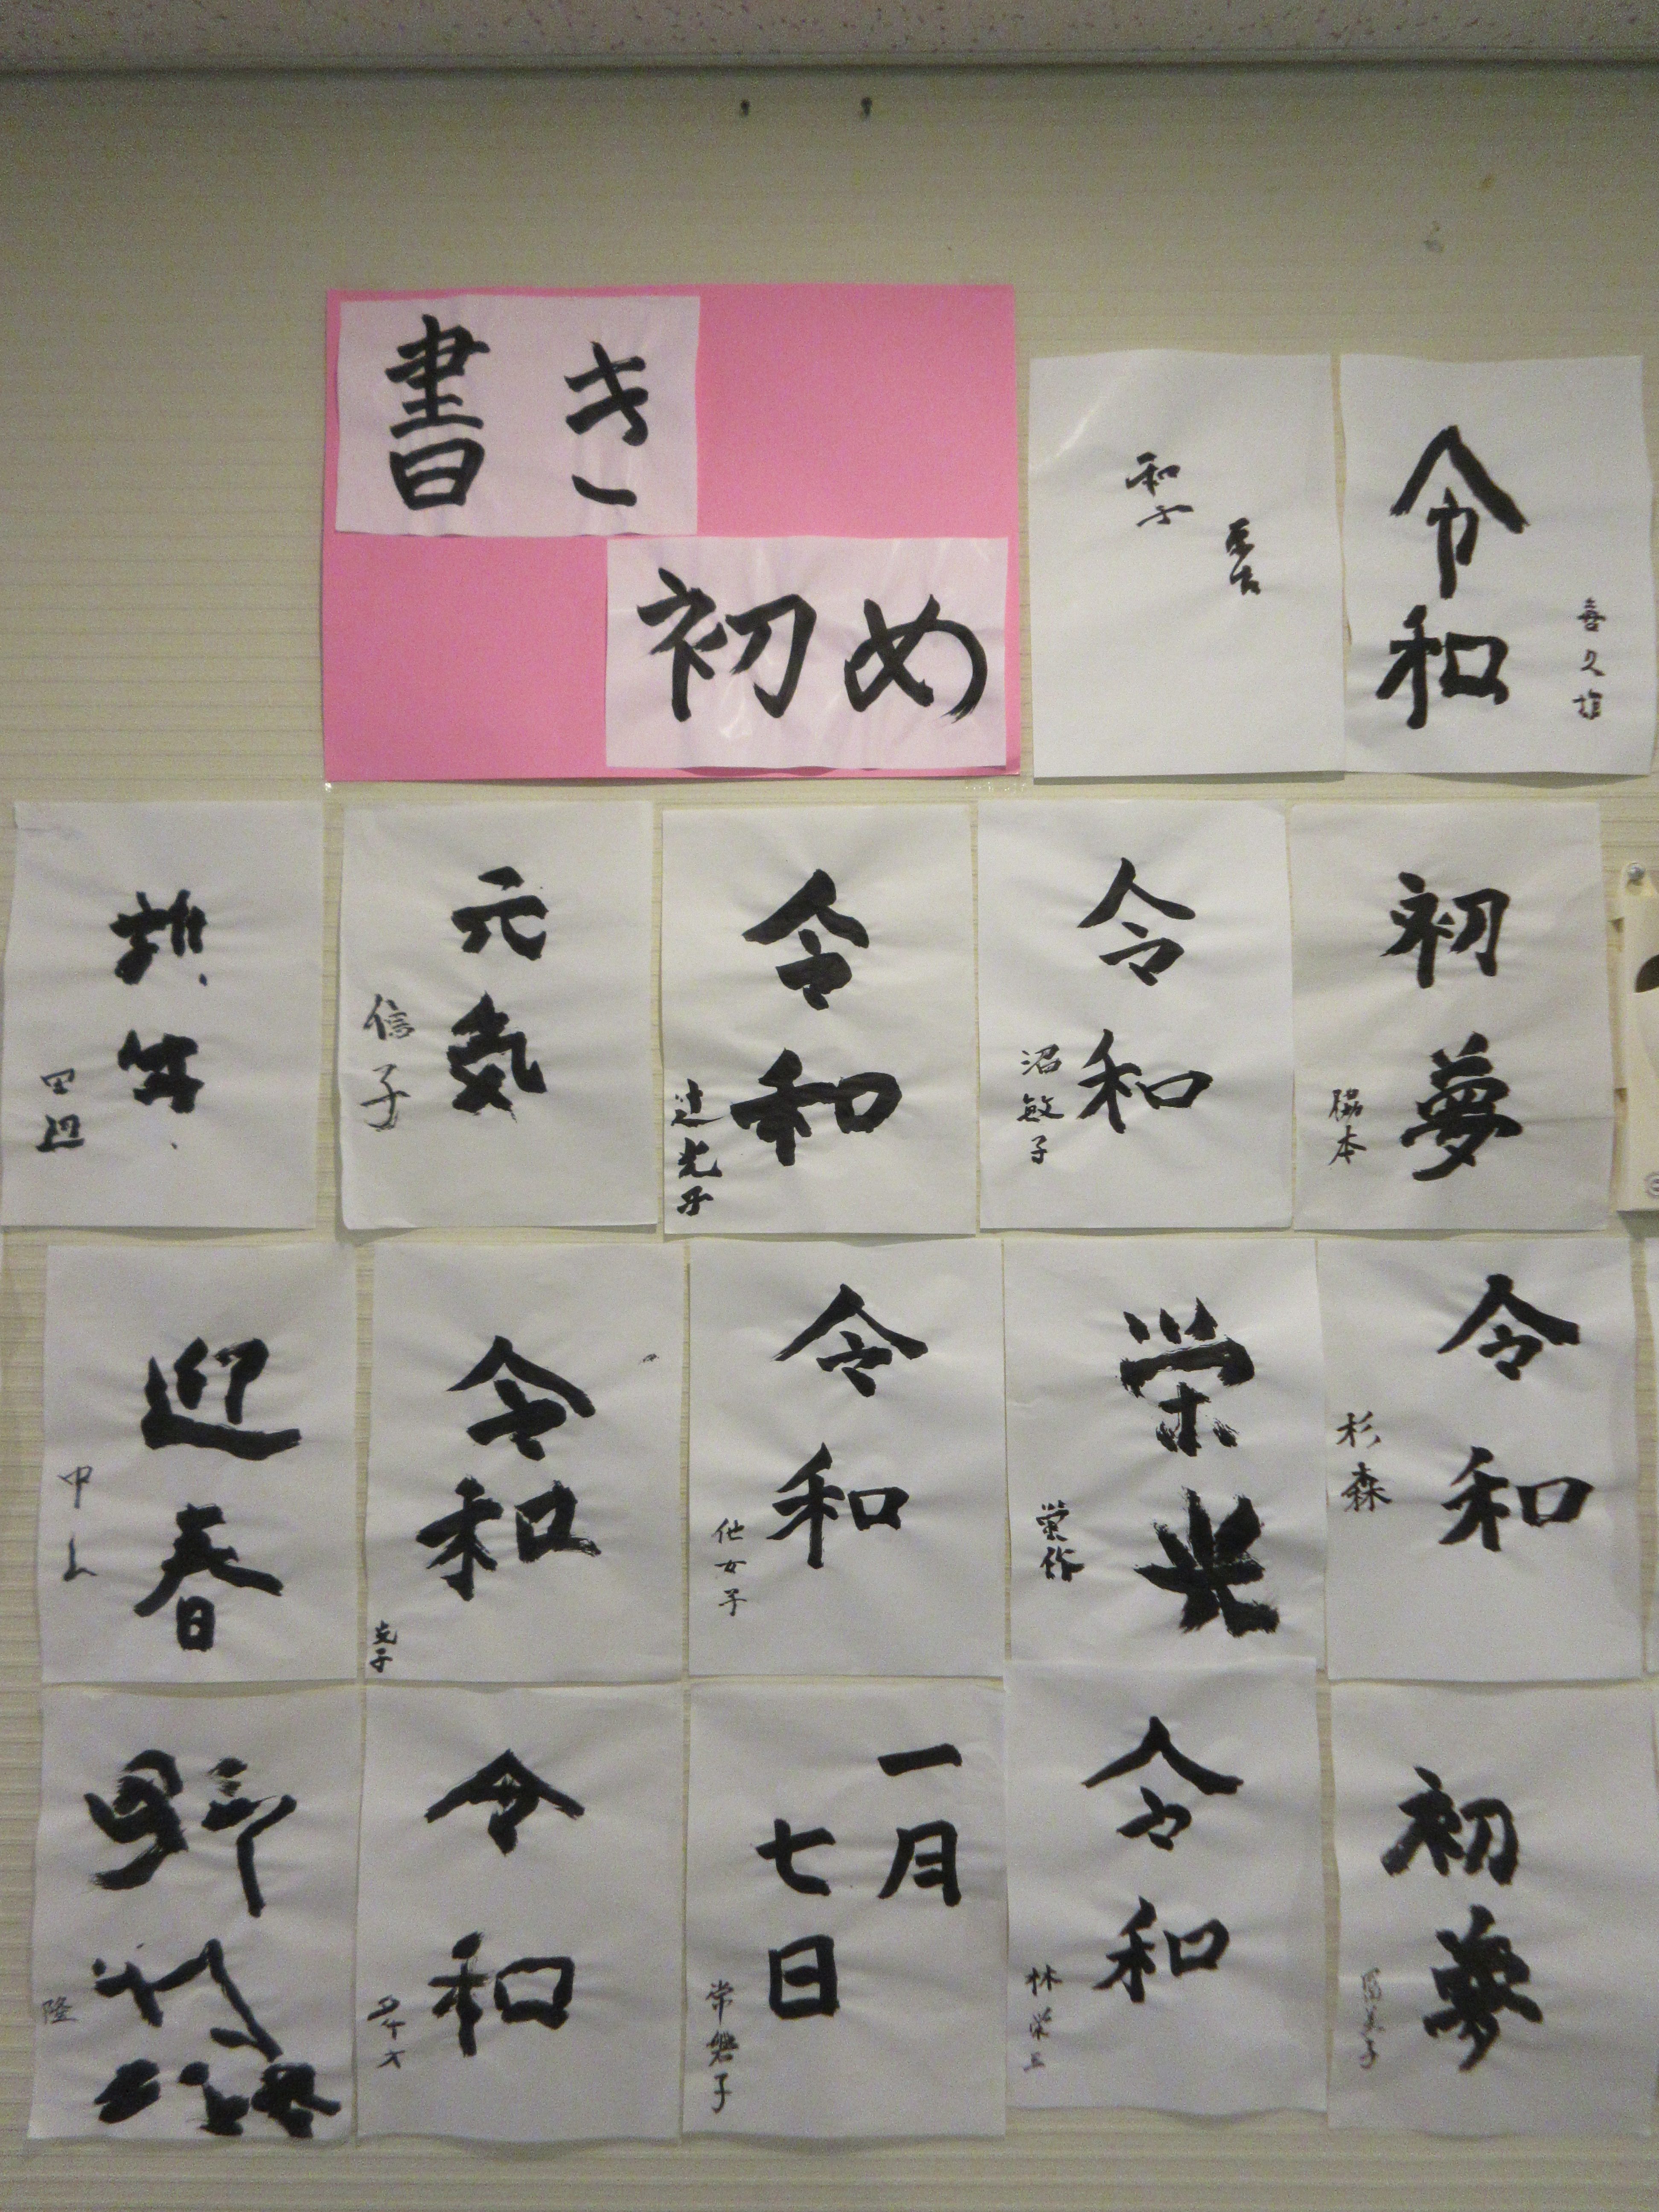 書き
初め
和子
令和
喜久雄
元気
信子
令和
辻光子
令和
沼敏子
初夢
脇本
田辺
迎春
中山
令和
克子
令和
他女子
栄光
栄作
令和
杉森
隆
令和
一月
七日
常磐子
令和
林栄三
初夢